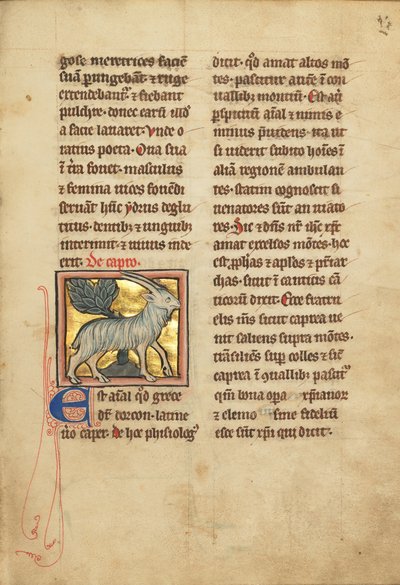 gose meretrices faciẽ
suã perungebant ⁊ ruge
extendebant᷑ ⁊ fiebant
pulchre donec earũ illud
a facie lauaret. Unde o
ratius poeta. Oua sua
ĩ t̃ra fouet. masculus
⁊ femina uices fouẽdi
seruant hũc ydrus deglu
titus. dentibꝫ ⁊ unguibꝫ
interimit ⁊ uiuus inde
exit. De capro.
Est aĩal qđ grece
dr̃ dorcon. latine
ũo caper. de hoc phisiologꝰ
dicit. qđ amat altos mõ
tes. pascitur autẽ ĩ con
uallibꝫ montiũ. Est aũt
ꝑspicuũ aĩal ⁊ nimis e
minus p̃uidens. ita ut
si uiderit subito hoĩes ĩ
aliã regionẽ ambulan
tes. statim cognoscit si
uenatores sũt an uiato
res. Sic ⁊ dñs nr̃ ihc̃ xp̃c
amat excelsos mõtes. hoc
est. ꝓphas ⁊ apl̃os ⁊ pr̃iar
chas. sicut ĩ canticis cã
ticorũ dicit. Ecce fratru
elis m̃s sicut caprea ue
nit saliens supra mõtes.
trãsiliẽs sup̃ colles ⁊ sic̃
caprea ĩ cõuallibꝫ pascit᷑
qm̃ bona oꝑa xp̃ianor
⁊ elemo sine fideliũ
esce sũt xp̃i qui dicit.